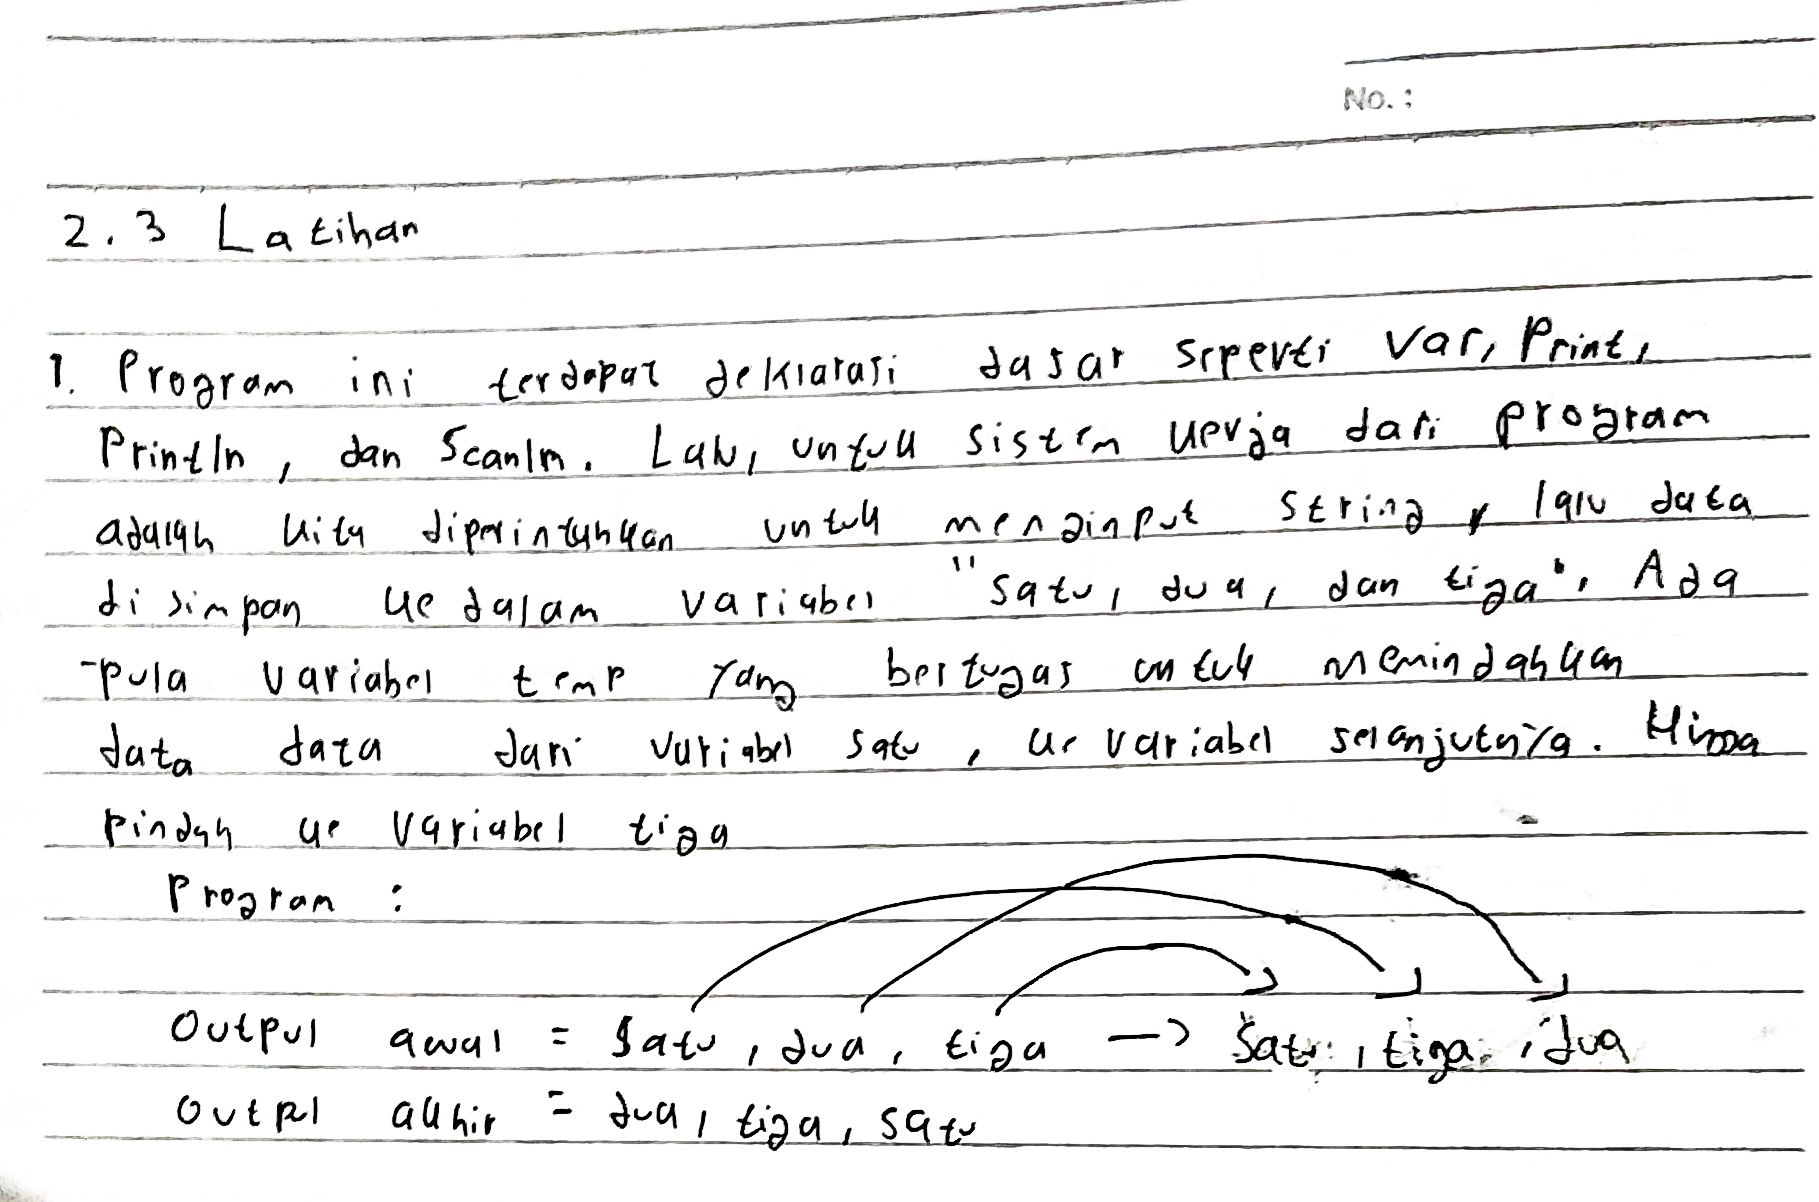 No. :
2.3 Latihan
1. Program ini terdapat deklarasi dasar seperti Var, Print,
Println, dan Scanln. Lalu, untuk sistem kerja dari program
adalah kita diperintahkan untuk menginput string, lalu data
di simpan ke dalam variabel "satu, dua, dan tiga". Ada
-pula variabel temp yang bertugas untuk memindahkan
data data dari variabel satu, ke variabel selanjutnya. Hingga
pindah ke variabel tiga
Program :
Output awal = satu, dua, tiga -> satu, tiga, dua
Output akhir = dua, tiga, satu